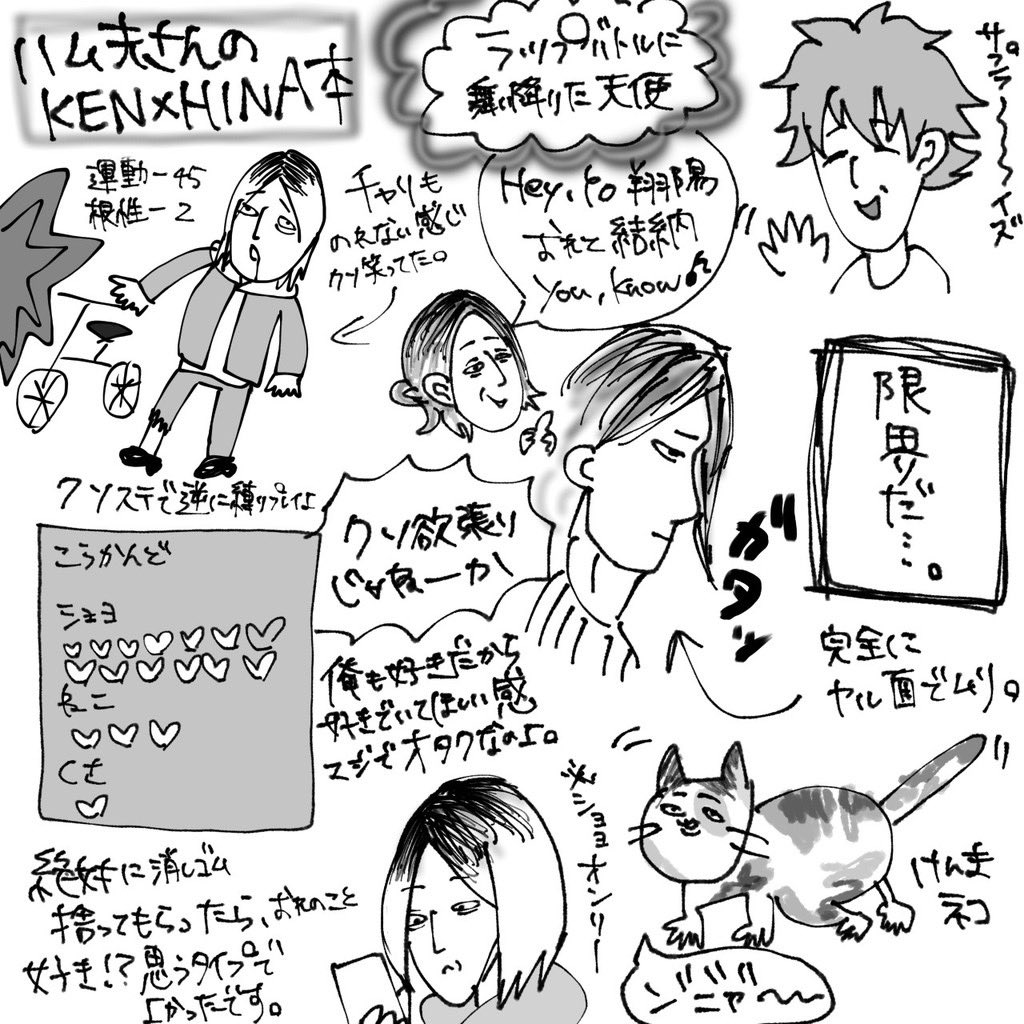 ハム夫さんの
KEN×HINA本
ラップバトルに
舞い降りた天使
サプラ〜〜〜イズ
運動ー45
根性ー2
チャリも
のれない感じ
クソ笑ってた。
Hey, yo 翔陽
おれと結納
you, know♪
限界だ…。
クソステで逆に縛りプレイよ
クソ欲張り
じゃねーか
ガタッ
こうかんど
ショヨ
ねこ
くさ
俺も好きだから
好きでいてほしい感
マジでオタクなのよ。
完全に
ヤル面でムリ。
※ショヨオンリー
けんま
ネコ
ゾニャ〜〜
絶妙に消しゴム
捨ってもらったら、おれのこと
好き!?思うタイプで
よかったです。